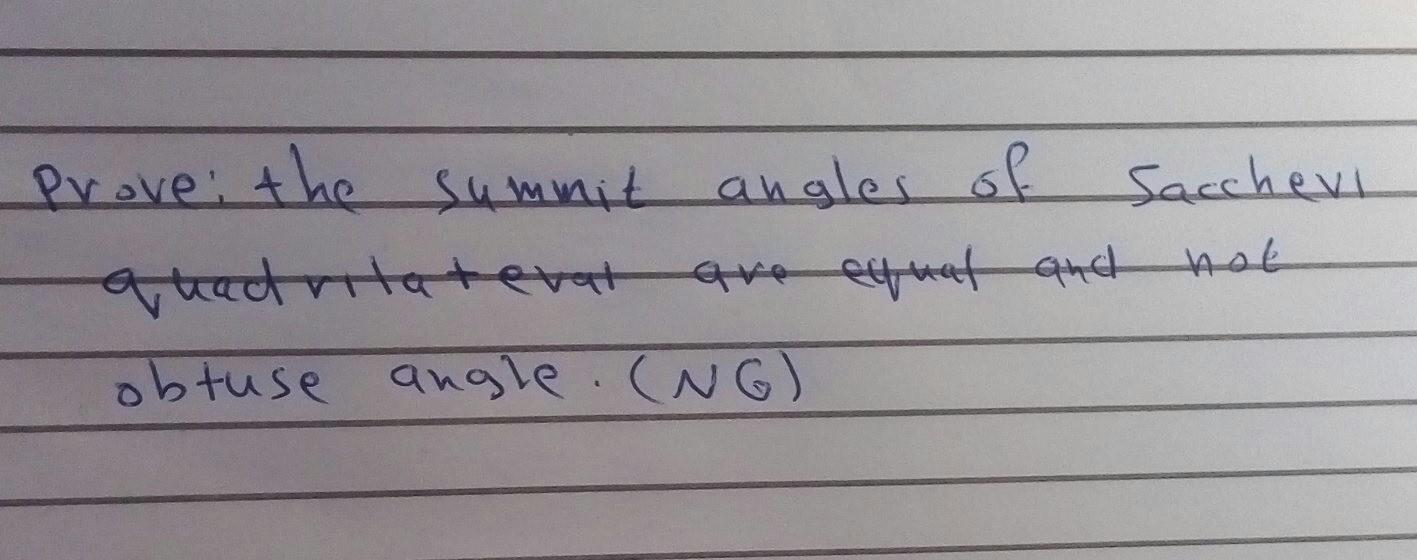 Prove: the summit angles of Saccheri
quadrilateral are equal and not
obtuse angle. (NG)